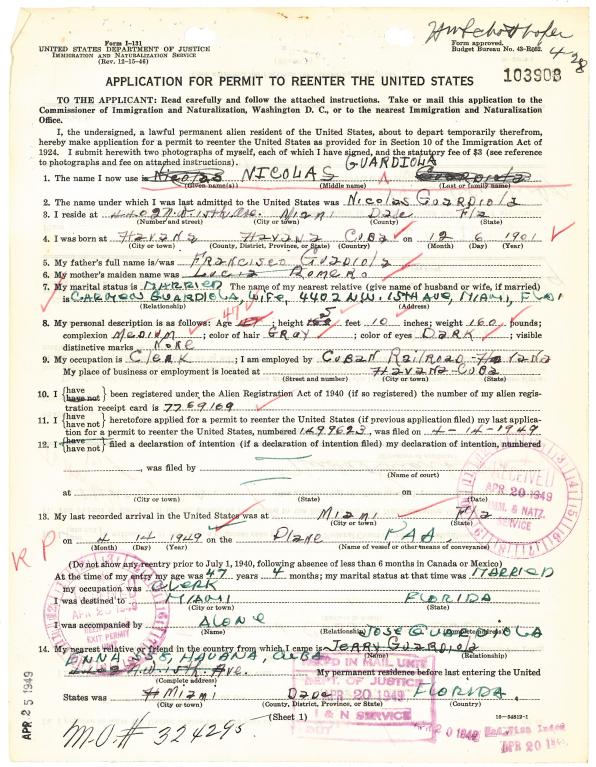 Form I-131
UNITED STATES DEPARTMENT OF JUSTICE
IMMIGRATION AND NATURALIZATION SERVICE
(Rev. 12-15-46)
Form approved.
Budget Bureau No. 43-R052.
4-28
103908
APPLICATION FOR PERMIT TO REENTER THE UNITED STATES
TO THE APPLICANT: Read carefully and follow the attached instructions. Take or mail this application to the
Commissioner of Immigration and Naturalization, Washington D. C., or to the nearest Immigration and Naturalization
Office.
I, the undersigned, a lawful permanent alien resident of the United States, about to depart temporarily therefrom,
hereby make application for a permit to reenter the United States as provided for in Section 10 of the Immigration Act of
1924. I submit herewith two photographs of myself, each of which I have signed, and the statutory fee of $3 (see reference
to photographs and fee on attached instructions).
GUARDIOLA
1. The name I now use is Nicolas NICOLAS Guardiola
(Given name(s)) (Middle name) (Last or family name)
2. The name under which I was last admitted to the United States was Nicolas Guardiola
3. I reside at 4402 N.W. 15th Ave. Miami Dade Fla
(Number and street) (City or town) (County) (State)
4. I was born at Havana Havana Cuba on 12 6 1901
(City or town) (County, District, Province, or State) (Country) (Month) (Day) (Year)
5. My father's full name is/was Francisco Guardiola
6. My mother's maiden name was Lucia Romero
7. My marital status is MARRIED The name of my nearest relative (give name of husband or wife, if married)
is CARMEN GUARDIOLA, WIFE, 4402 N.W. 15TH AVE, MIAMI, FLO
(Relationship) (Address)
8. My personal description is as follows: Age 47; height 5 feet 10 inches; weight 160 pounds;
complexion MEDIUM; color of hair GRAY; color of eyes DARK; visible
distinctive marks None
9. My occupation is Clerk; I am employed by Cuban Railroad - Havana
My place of business or employment is located at Havana - Cuba
(Street and number) (City or town)
10. I {have have not} been registered under the Alien Registration Act of 1940 (if so registered) the number of my alien regis-
tration receipt card is 7769169
11. I {have have not} heretofore applied for a permit to reenter the United States (if previous application filed) my last applica-
tion for a permit to reenter the United States, numbered 1499623, was filed on 4-14-1949
12. I {have have not} filed a declaration of intention (if a declaration of intention filed) my declaration of intention, numbered
, was filed by
(Name of court)
at on
(City or town) (State) (Date)
RECEIVED
APR 20 1949
IMM. & NATZ.
SERVICE
13. My last recorded arrival in the United States was at Miami Fla
(City or town) (State)
on 4 14 1949 on the Plane PAA
(Month) (Day) (Year) (Name of vessel or other means of conveyance)
(Do not show any reentry prior to July 1, 1940, following absence of less than 6 months in Canada or Mexico)
At the time of my entry my age was 47 years 4 months; my marital status at that time was MARRIED
my occupation was CLERK
I was destined to MIAMI FLORIDA
(City or town) (State)
I was accompanied by ALONE
(Name) (Relationship) (Complete address)
JOSE GUARDIOLA
14. My nearest relative or friend in the country from which I came is Jerry Guardiola
(Name) (Relationship)
ENNA 558, HAVANA, CUBA
My permanent residence before last entering the United
(Complete address)
States was Miami Dade FLORIDA
(City or town) (County, District, Province, or State) (Country)
(Sheet 1)
16-54812-1
EXIT PERMIT
IN MAIL UNIT
DEPT. OF JUSTICE
APR 20 1949
I & N SERVICE
OUT
APR 20 1949
APR 25 1949
M.O. # 324295